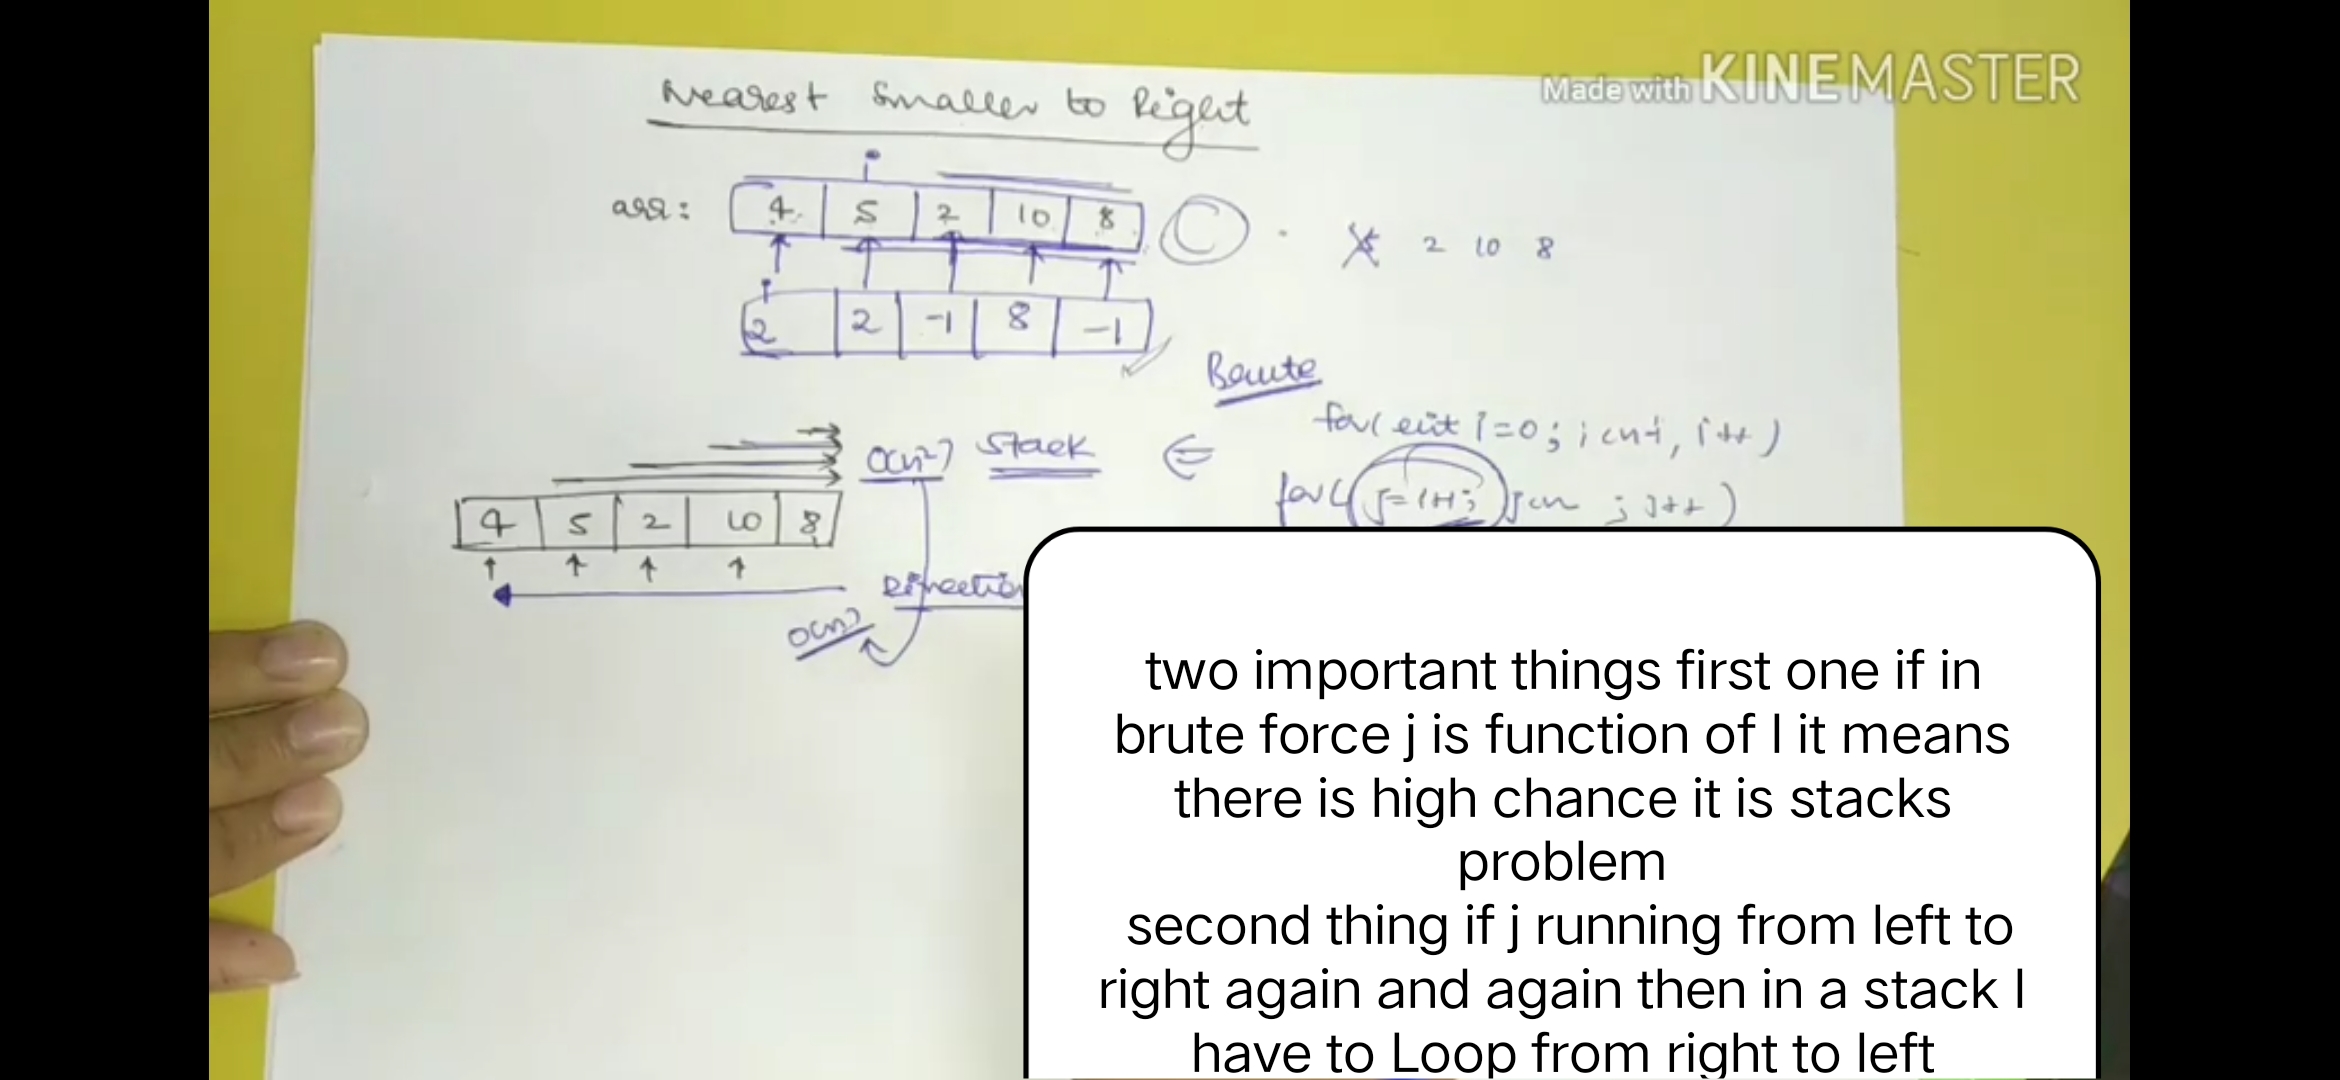 Made with KINEMASTER
Nearest Smaller to Right
arr: 4 5 2 10 8
2 10 8
2 2 -1 8 -1
Brute
for( int i=0; i<n-1, i++)
O(n²) Stack
for( j=i+1; j<n ; j++)
4 5 2 10 8
O(n)
two important things first one if in
brute force j is function of I it means
there is high chance it is stacks
problem
second thing if j running from left to
right again and again then in a stack I
have to Loop from right to left